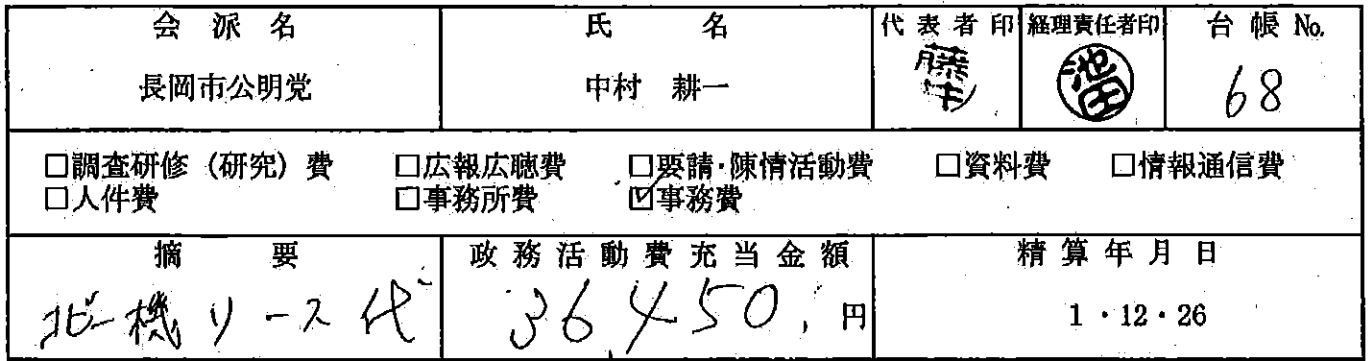 会派名 氏名 代表者印 経理責任者印 台帳No.
長岡市公明党 中村 耕一 池田 68
□調査研修（研究）費 □広報広聴費 □要請・陳情活動費 □資料費 □情報通信費
□人件費 □事務所費 ☑事務費
摘要 政務活動費充当金額 精算年月日
コピー機リース代 36,450, 円 1・12・26